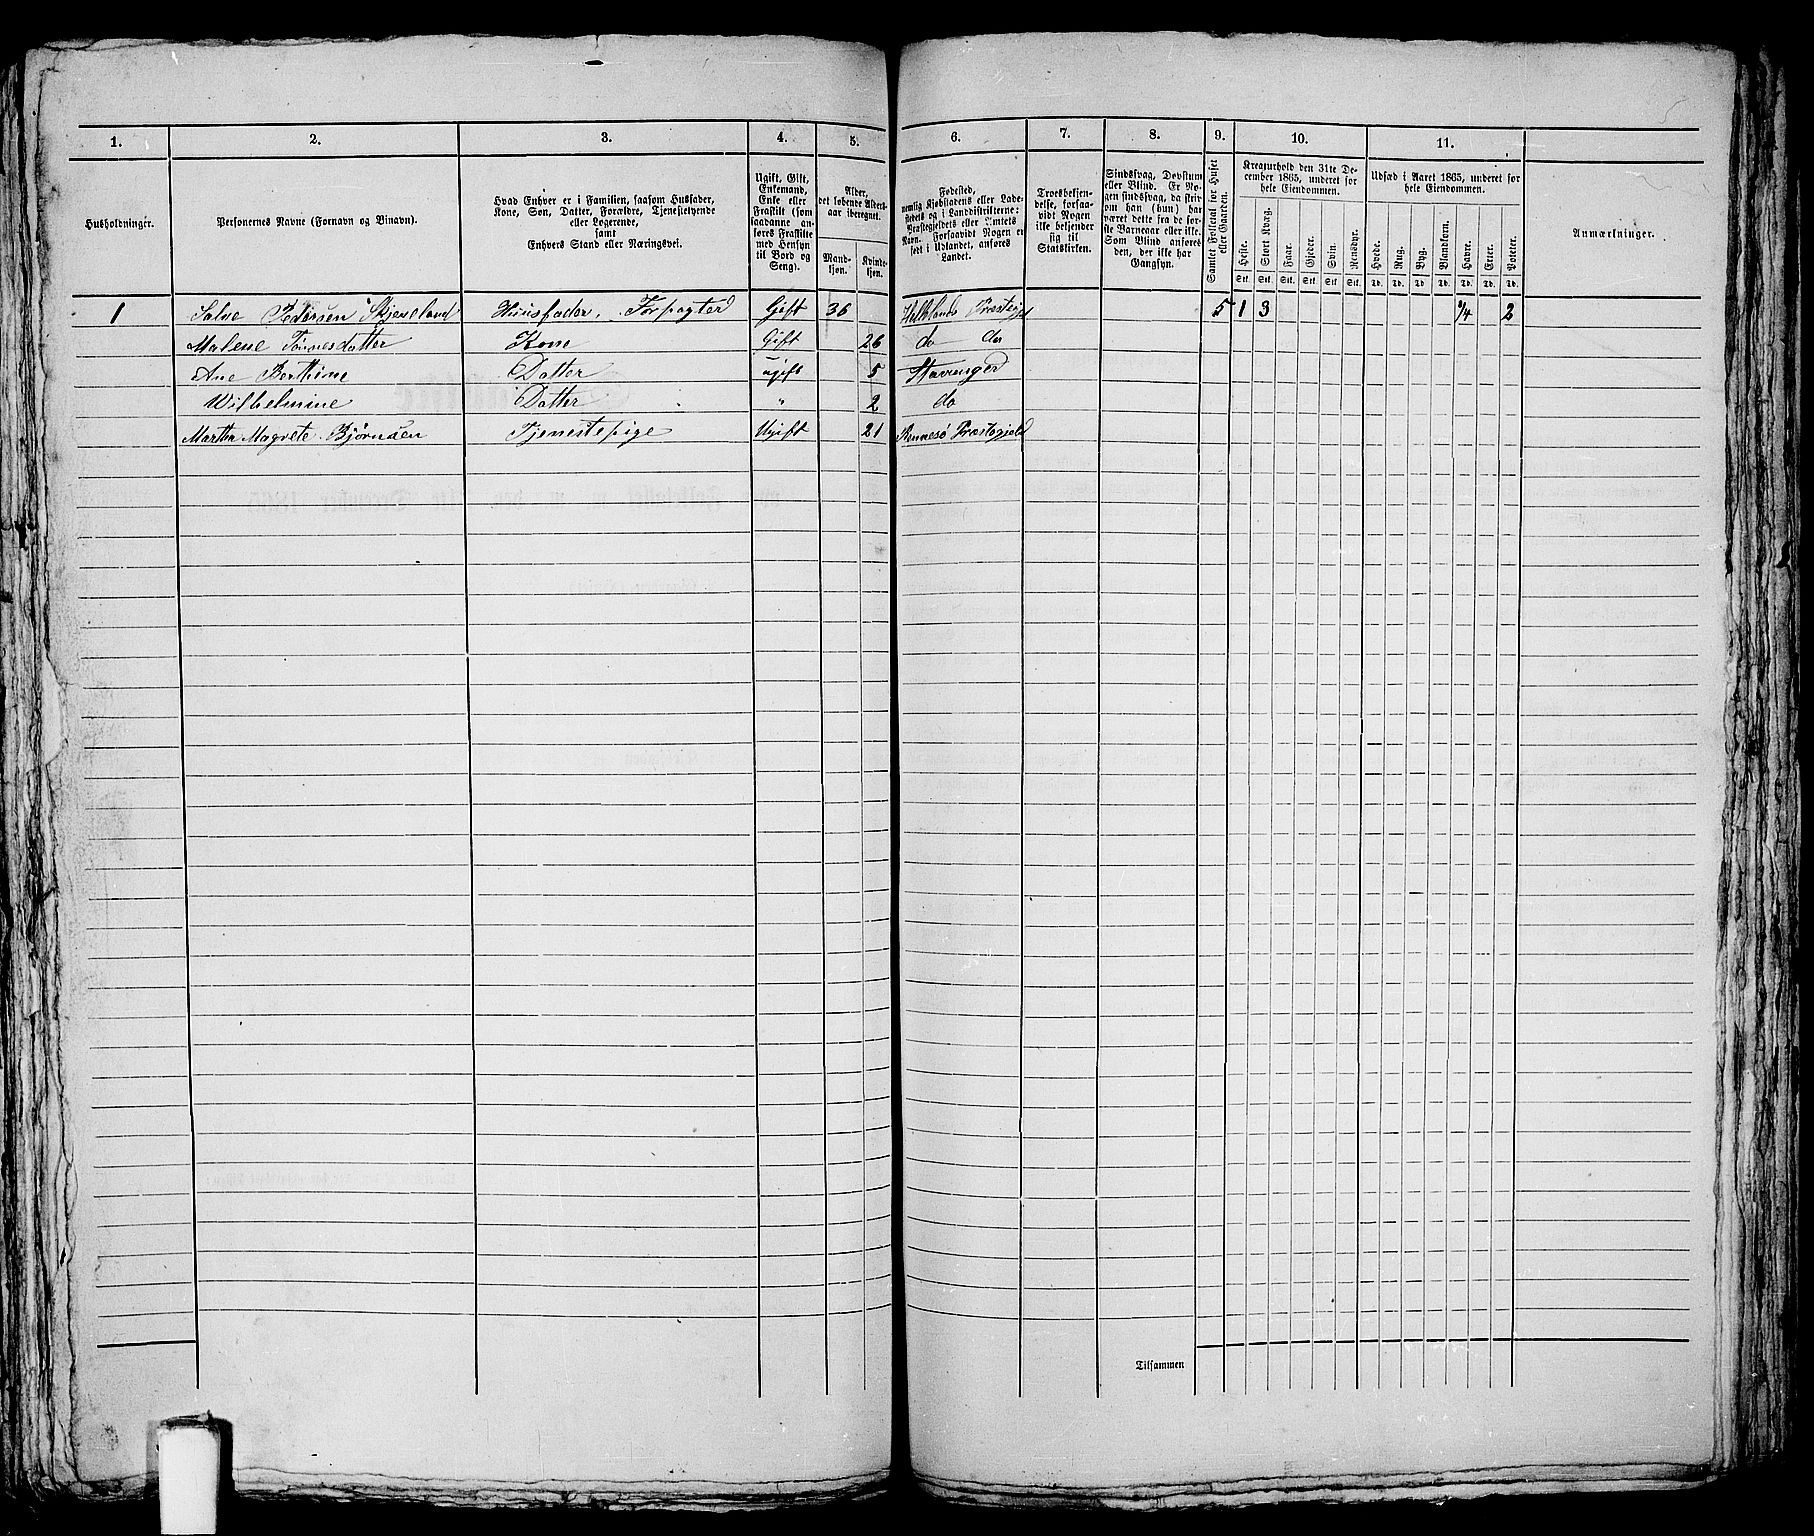 1. 2. 3. 4. 5. 6. 7. 8. 9. 10. 11.
Husholdninger.
Personernes Navne (Fornavn og Binavn).
Hvad Enhver er i Familien, saasom Husfader,
Kone, Søn, Datter, Forældre, Tjenestetyende
eller Logerende,
samt
Enhvers Stand eller Næringsvei.
Ugift, Gift,
Enkemand,
Enke eller
Fraskilt (som
saadanne an-
føres Fraskilte
med Hensyn
til Bord og
Seng).
Alder,
det løbende Alders-
aar iberegnet.
Mand-
kjøn.
Kvinde-
kjøn.
Fødested,
nemlig Kjøbstadens eller Lade-
stedets og i Landdistrikterne:
Præstegjeldets eller Amtets
Navn. Forsaavidt Nogen er
født i Udlandet, anføres
Landet.
Troesbekjen-
delse, forsaa-
vidt Nogen
ikke bekjender
sig til
Statskirken.
Sindssvag, Døvstum
eller Blind. Er No-
gen sindssvag, da skriv
om han (hun) har
været dette fra de for-
ste Barneaar eller ikke.
Som Blind anføres
den, der ikke har
Gangsyn.
Samlet Folketal for Huset
eller Gaarden.
Kreaturhold den 31te De-
cember 1865, underet for
hele Eiendommen.
Heste. Stort Kvæg. Faar. Gjeder. Svin. Rensdyr.
Stk. Stk. Stk. Stk. Stk. Stk.
Udsæd i Aaret 1865, underet for
hele Eiendommen.
Hvede. Rug. Byg. Blandkorn. Havre. Erter. Poteter.
Td. Td. Td. Td. Td. Td. Td.
Anmærkninger.
1 Salve Pedersen Skjeveland Huusfader, Forpagter Gift 36 Præstegjel 5 1 3 3/4 2
Malene Tønnesdatter Kone Gift 26 do do
Ane Berthine Datter ugift 5 Stavanger
Wilhelmine Datter " 2 do
Martha Magrete Bjørnsen Tjenestepige Ugift 21 Rennesø Præstegjeld
Tilsammen